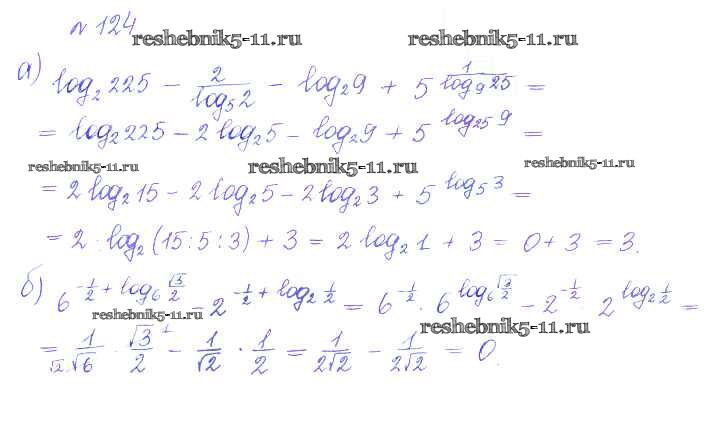 № 124
reshebnik5-11.ru reshebnik5-11.ru
а) log₂225 − 2/log₅2 − log₂9 + 5^(1/log₉25) =
= log₂225 − 2log₂5 − log₂9 + 5^(log₂₅9) =
reshebnik5-11.ru reshebnik5-11.ru reshebnik5-11.ru
= 2log₂15 − 2log₂5 − 2log₂3 + 5^(log₅3) =
= 2 · log₂(15:5:3) + 3 = 2log₂1 + 3 = 0+3 = 3.
б) 6^(−1/2 + log₆ √3/2) − 2^(−1/2 + log₂ 1/2) = 6^(−1/2) · 6^(log₆ √3/2) − 2^(−1/2) · 2^(log₂ 1/2) =
reshebnik5-11.ru reshebnik5-11.ru
= 1/√6 · √3/2 − 1/√2 · 1/2 = 1/(2√2) − 1/(2√2) = 0.